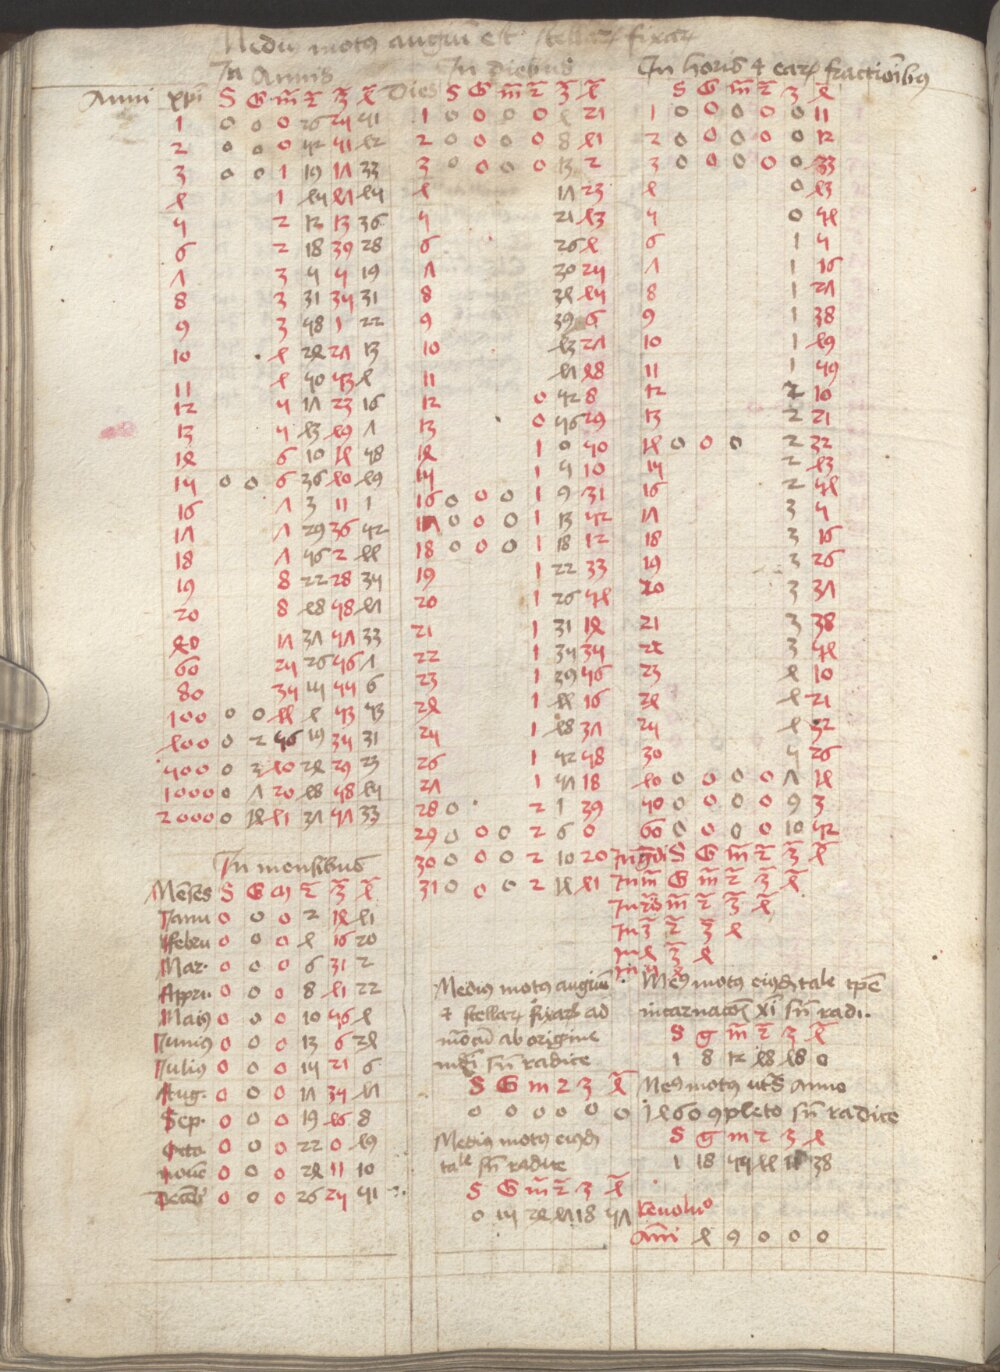 Medius motus augium est stellarum fixarum
In Annis
Anni xpi S G m 2 3 4
1 0 0 0 26 25 51
2 0 0 0 52 51 42
3 0 0 1 19 17 33
4 1 45 47 45
5 2 12 13 36
6 2 18 39 28
7 3 5 5 19
8 3 31 35 31
9 3 58 1 22
10 4 24 27 13
11 4 50 53 4
12 5 17 23 16
13 5 43 49 7
14 6 10 14 58
15 0 0 6 36 40 49
16 7 3 11 1
17 7 29 36 52
18 7 56 2 44
19 8 22 28 35
20 8 48 58 47
40 17 37 57 33
60 25 26 56 7
80 35 15 55 6
100 0 0 44 4 53 53
400 0 2 56 19 35 31
500 0 3 40 24 29 23
1000 0 7 20 48 58 45
2000 0 14 41 37 57 33
In mensibus
Mẽses S G m 2 3 4
Janu 0 0 0 2 14 41
Febru 0 0 0 4 16 20
Mar. 0 0 0 6 31 2
Appri 0 0 0 8 41 22
Maius 0 0 0 10 56 4
Junius 0 0 0 13 6 24
Julius 0 0 0 15 21 6
Aug. 0 0 0 17 35 47
Sep. 0 0 0 19 46 8
Octo 0 0 0 22 0 49
Nouẽ 0 0 0 24 11 10
Decẽb 0 0 0 26 25 51
In Diebus
Dies S G m 2 3 4
1 0 0 0 0 4 21
2 0 0 0 0 8 41
3 0 0 0 0 13 2
4 17 23
5 21 43
6 26 4
7 30 25
8 34 45
9 39 6
10 43 27
11 47 48
12 0 52 8
13 0 56 29
14 1 0 50
15 1 5 10
16 0 0 0 1 9 31
17 0 0 0 1 13 52
18 0 0 0 1 18 12
19 1 22 33
20 1 26 54
21 1 31 14
22 1 35 35
23 1 39 56
24 1 44 16
25 1 48 37
26 1 52 58
27 1 57 18
28 0 2 1 39
29 0 0 0 2 6 0
30 0 0 0 2 10 20
31 0 0 0 2 14 41
Medius motus augium
& stellarum fixarum ad
motũ ab origine
mũdi sñ radice
S G m 2 3 4
0 0 0 0 0 0
Medius motus eiusdẽ
tale sñ radice
S G m 2 3 4
0 15 24 47 18 57
In horis & earum fractionibus
S G m 2 3 4
1 0 0 0 0 0 11
2 0 0 0 0 0 12
3 0 0 0 0 0 33
4 0 43
5 0 54
6 1 5
7 1 16
8 1 27
9 1 38
10 1 49
11 1 59
12 2 10
13 2 21
14 0 0 0 2 32
15 2 43
16 2 54
17 3 5
18 3 16
19 3 26
20 3 37
21 3 38
22 3 54
23 4 10
24 4 21
25 4 32
30 5 26
40 0 0 0 0 7 14
50 0 0 0 0 9 3
60 0 0 0 0 10 52
In gdi S G m 2 3 4
In m G m 2 3 4
In 2 m 2 3 4
In 3 2 3 4
In 4 3 4
Meus motus eiusdẽ tale tpẽ
incarnacõis xi sñ radi.
S g m 2 3 4
1 8 12 48 48 0
Meus motus uts Anno
1460 completo sñ radice
S g m 2 3 4
1 18 55 44 38
Reuoluo
Anni 4 9 0 0 0